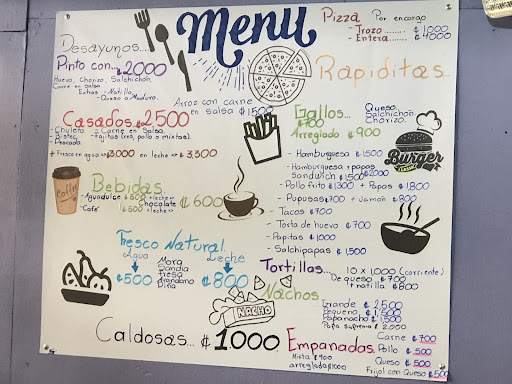 Menu
Desayunos...
Pinto con...₡2000
Huevo, Chorizo, Salchichon,
Carne en Salsa
Extras - Natilla,
Queso o Maduro.
Arroz con carne
en salsa ₡1500
Casados...₡2500
- Chuleta - Carne en Salsa.
- Bistec - Fajitas (res, pollo o mixtas).
- Pescado
+ Fresco en agua => ₡3,000 en leche => ₡3,300
Coffee
Bebidas.
- Aguadulce ₡600 + leche =>
Chocolate ₡600
- Café ₡600 + leche =>
Fresco Natural.
Agua
₡500
Mora
Sandia
Fresa
Arandano
Piña
Leche
₡800
NACHO
Caldosas... ₡1000
Pizza Por encargo
- Trozo ......... ₡1,000
- Entera ......... ₡4000
Rapiditas...
Gallos... Queso,
₡700 Salchichon
Chorizo.
Arreglado ₡900
Burger
- Hamburguesa ₡1,500
- Hamburguesa + papas ₡2000
Sandwich ₡1,500
- Pollo frito ₡1300 + Papas ₡1,800
- Pupusas ₡700 + Jamón ₡800
- Tacos ₡700
- Torta de huevo ₡700
- Papitas ₡1000
- Salchipapas ₡1,500
Tortillas... 10 x 1,000 (corriente)
De queso ₡700
+ natilla ₡800
Nachos.
Grande ₡2500
Pequeño ₡1,500
Papanacho ₡1,500
Papa suprema ₡2000
Empanadas.
Carne ₡700
Pollo ₡500
Queso ₡500
Frijol con Queso ₡500
Mixta ₡700
arreglada ₡1000